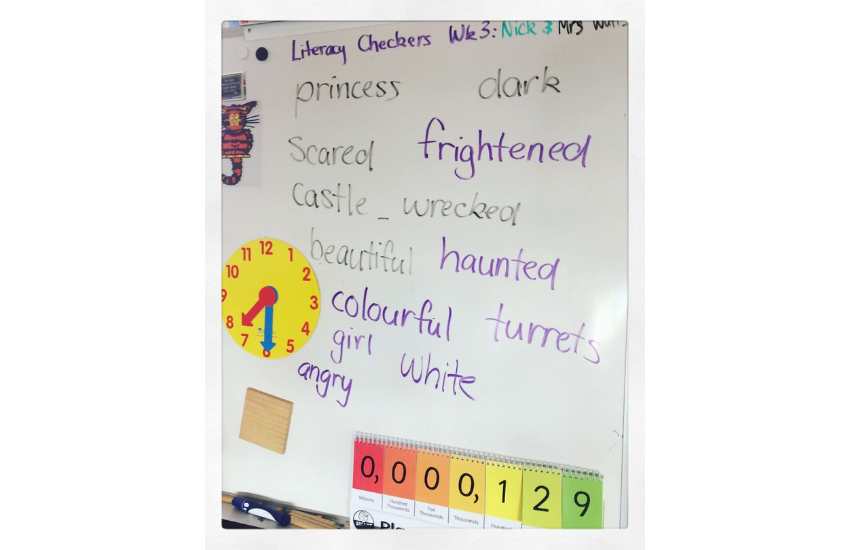 Literacy Checkers Wk3: Nick & Mrs
princess dark
Scared frightened
Castle - wrecked
beautiful haunted
colourful turrets
girl white
angry
12
11 1
10 2
9 3
8 4
7 5
6
0,000,129
Millions Hundred Thousands Ten Thousands Thousands